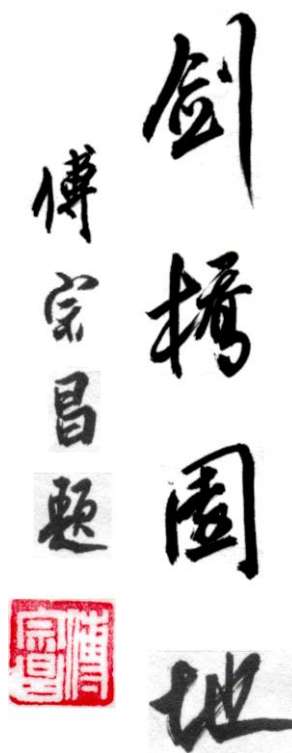 剑桥園地
傅宗昌题
傅宗昌